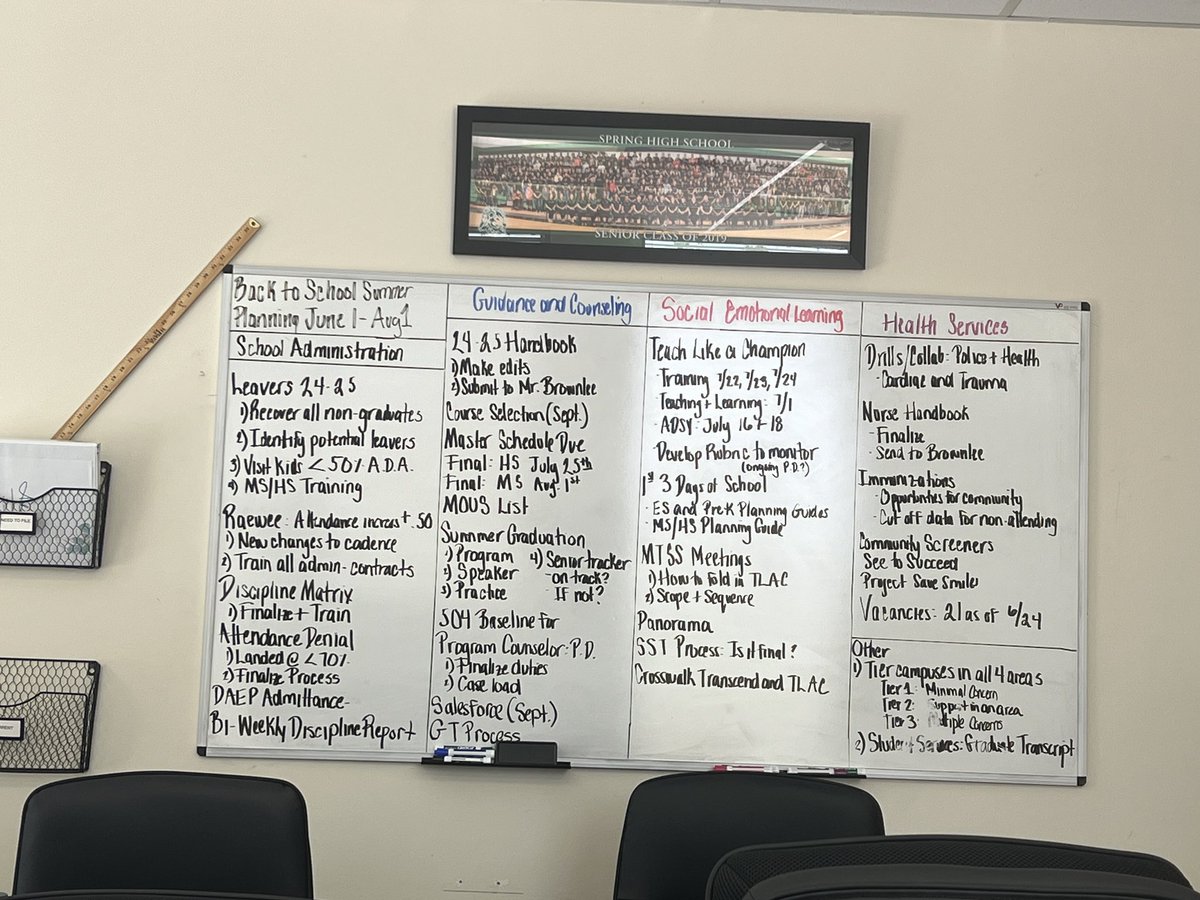 SPRING HIGH SCHOOL
SENIOR CLASS OF 2019
Back to School Summer
Planning June 1 - Aug 1
School Administration
Leavers 24-25
1) Recover all non-graduates
2) Identify potential leavers
3) Visit Kids < 50% A.D.A.
4) MS/HS Training
Raewee: Attendance increas + .50
1) New changes to cadence
2) Train all admin - contracts
Discipline Matrix
1) Finalize + Train
Attendance Denial
1) Landed @ < 70%
2) Finalize Process
DAEP Admittance-
Bi-Weekly Discipline Report
Guidance and Counseling
24-25 Handbook
1) Make edits
2) Submit to Mr. Brownlee
Course Selection (Sept.)
Master Schedule Due
Final: HS July 25th
Final: MS Aug. 1st
MOUS List
Summer Graduation
1) Program
2) Speaker
3) Practice
4) Senior tracker
- on track?
- IF not?
504 Baseline for
Program Counselor: P.D.
1) Finalize duties
2) Case load
Salesforce (Sept.)
GT Process
Social Emotional Learning
Teach Like a Champion
- Training 7/22, 7/23, 7/24
- Teaching + Learning: 7/1
- ADSY: July 16 + 18
- Develop Rubric to monitor
(ongoing P.D.?)
1st 3 Days of School
- ES and Pre-K Planning Guides
- MS/HS Planning Guide
MTSS Meetings
1) How to fold in TLAC
2) Scope + Sequence
Panorama
SST Process: Is it final?
Crosswalk Transcend and TLAC
Health Services
Drills/Collab: Police + Health
- Cardiac and Trauma
Nurse Handbook
- Finalize
- Send to Brownlee
Immunizations
- Opportunities for community
- Cut off data for non-attending
Community Screeners
See to Succeed
Project Save Smiles
Vacancies: 21 as of 6/24
Other
1) Tier campuses in all 4 areas
Tier 1: Minimal Concern
Tier 2: Support in an area
Tier 3: Multiple Concerns
2) Student Services: Graduate Transcript
NEED TO FILE